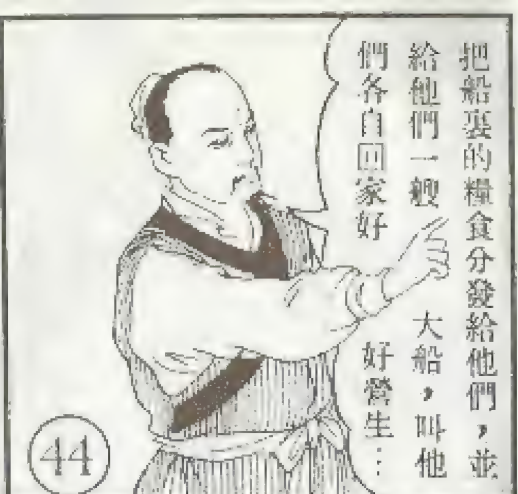 把船裏的糧食分發給他們，並
給他們一艘大船，叫他
們各自回家好好營生…
44